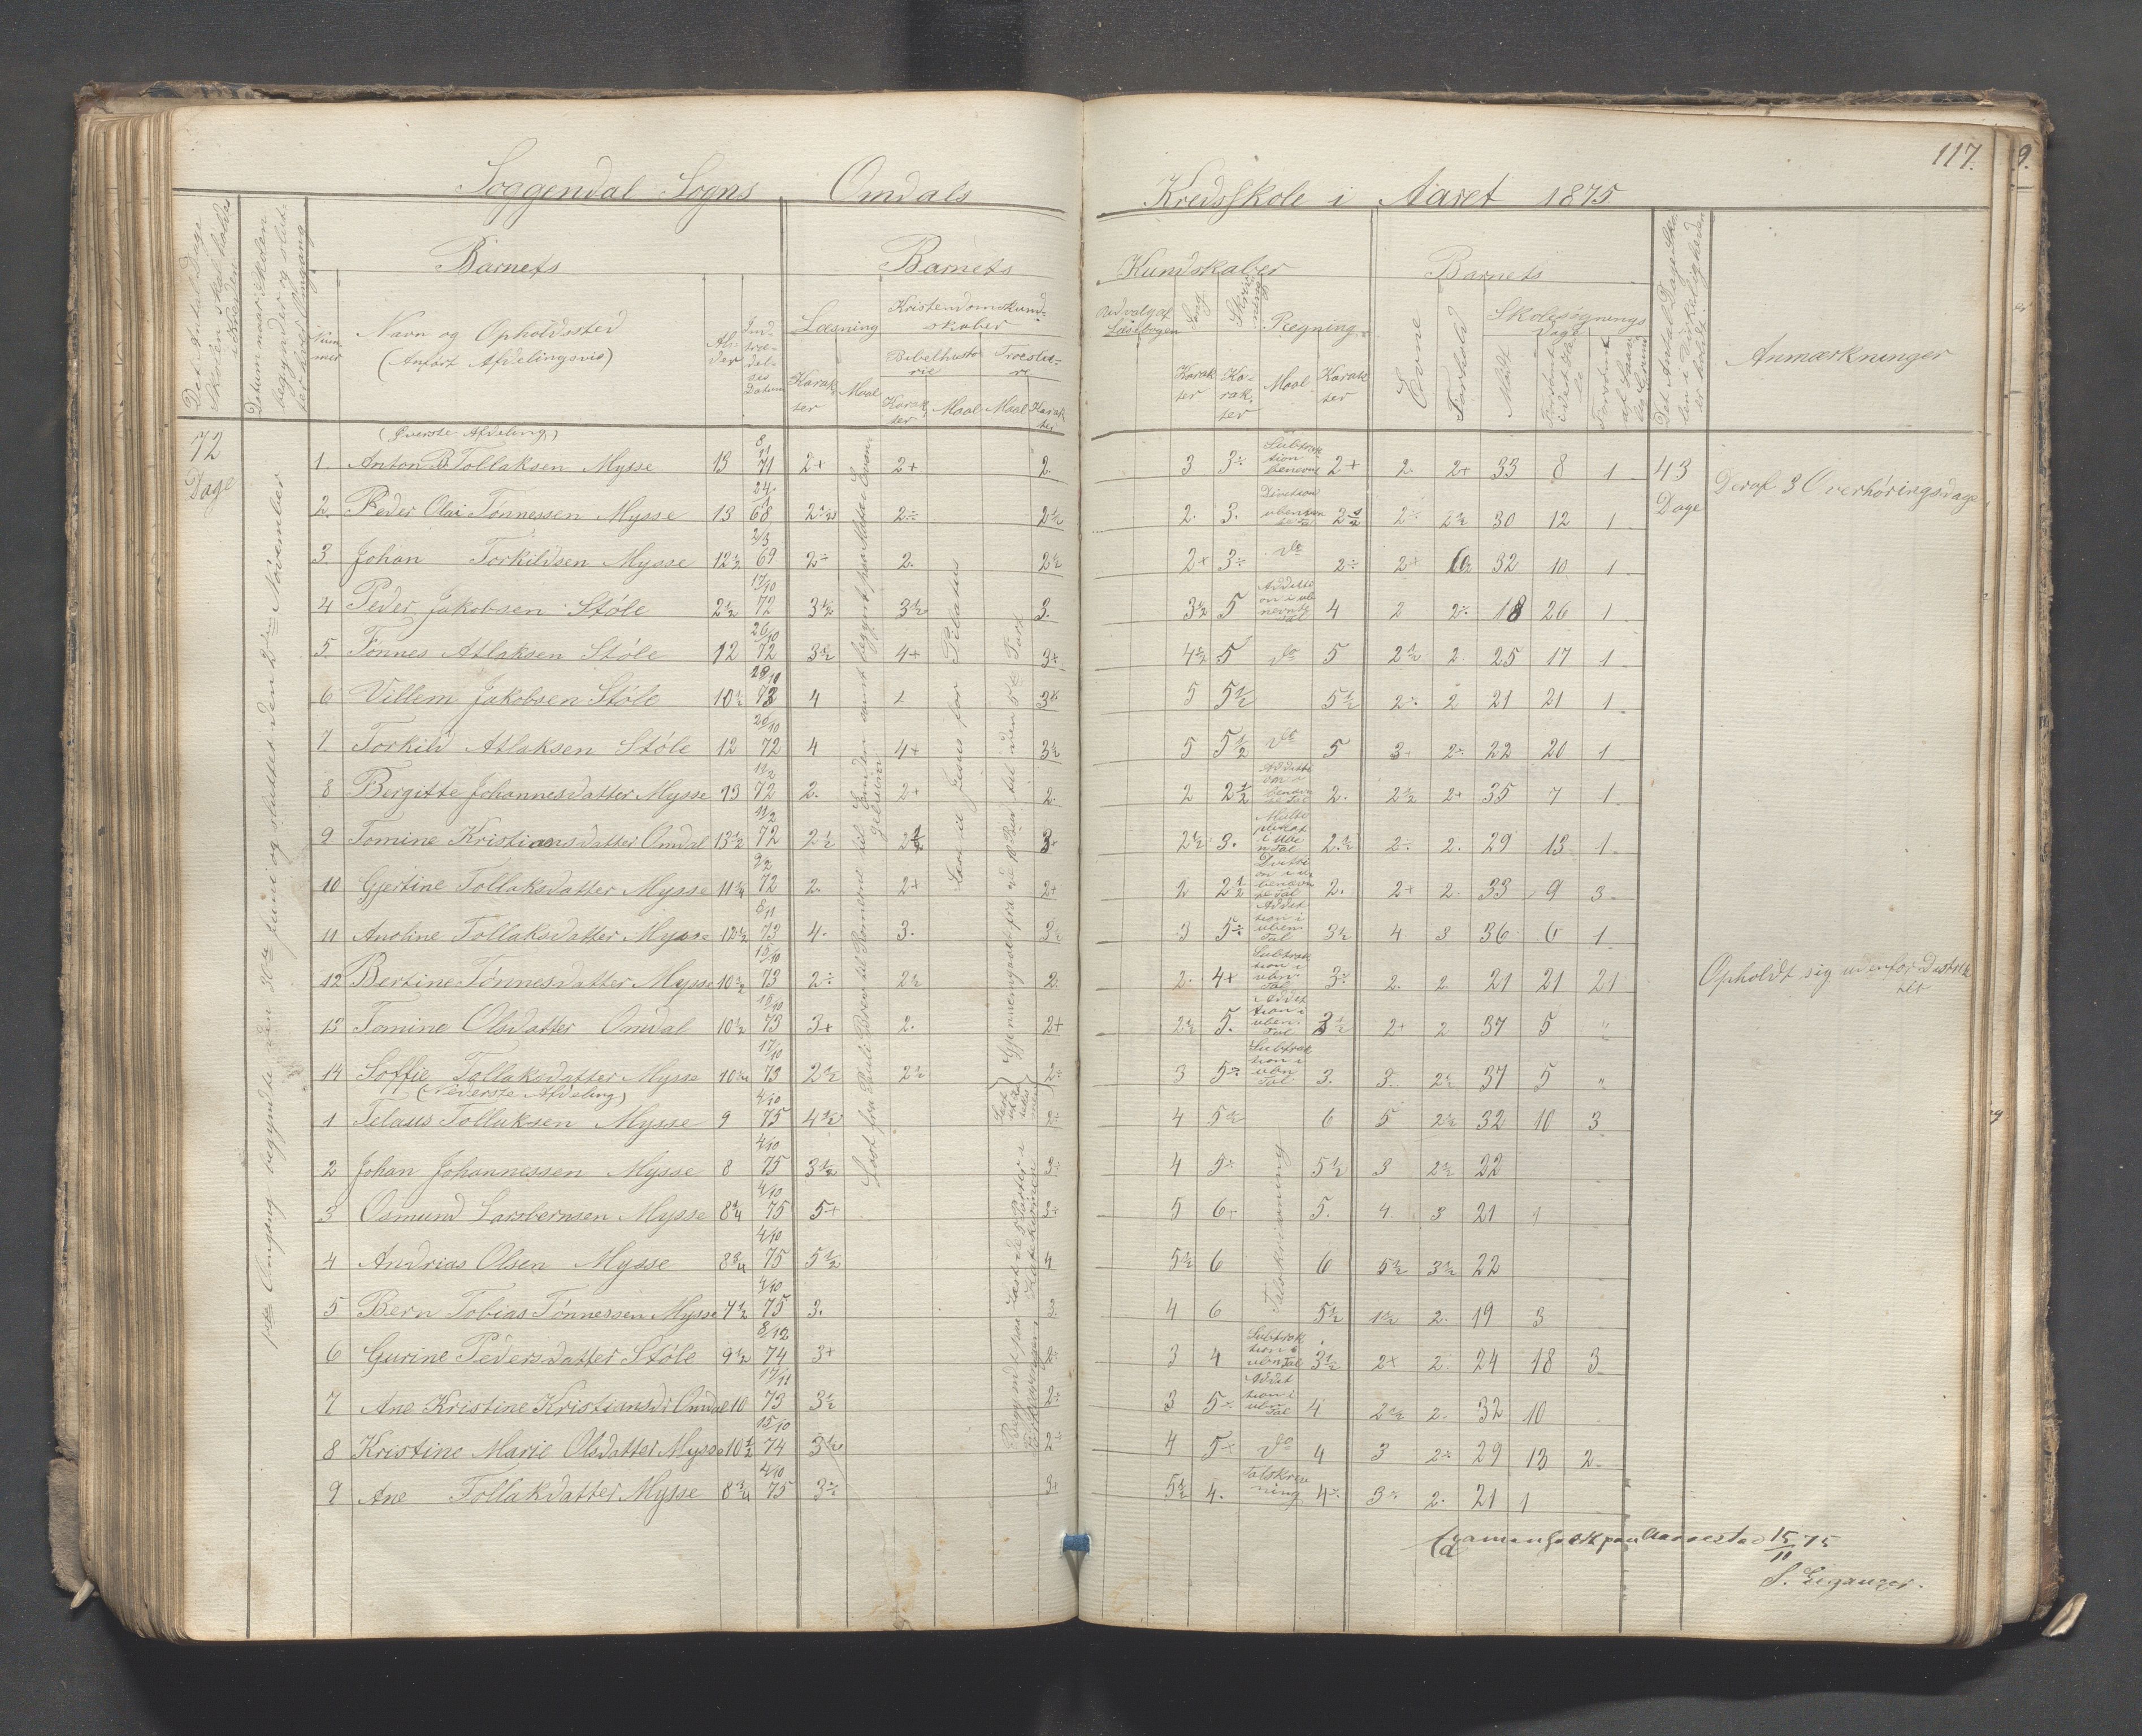 117.
Soggendal Sogns Omdals Kredsskole i Aaret 1875
Det Antal Dage Skolen skal holdes i Kredsen
Datum naar Skolen begynder og slutter hver Omgang
Barnets
Nummer
Navn og Opholdssted
(Anført Afdelingsvis)
Alder
Indtrædelses Datum
Barnets Kundskaber
Læsning
Karakter
Maal
Kristendomskundskaber
Bibelhistorie
Karakter
Maal
Troeslære
Maal
Karakter
Udvalg af Læsebogen
Sang
Karakter
Skrivning
Karakter
Regning
Maal
Karakter
Barnets
Evne
Forhold
Skolesøgnings Dage
Mødt
Forsømt i det Hele
Forsømt af lovlig Grund
Det Antal Dage Skolen i Virkeligheden er holdt
Anmærkninger
72 Dage
(Øverste Afdeling)
1. Anton B Tollaksen Mysse 13 8/11 71 2+ 2+ 2 3 3÷ Subtraktion benevnt 2+ 2. 2+ 33 8 1 43 Dage Deraf 3 Overhøringsdage
2. Peder Olai Tønnessen Mysse 13 68 2½ 2÷ 2½ 2. 3. Division i ubenevnte Tal 2½ 2÷ 2½ 30 12 1
3. Johan Torkildsen Mysse 12½ 2/3 69 2÷ 2. 2½ 2+ 3÷ do 2÷ 2+ 32 10 1
4 Peder Jakobsen Støle 17/10 72 3½ 3½ 3. 3½ 5 Addition i ubenevnte Tal 4 2 2÷ 18 26 1
5. Tønnes Atlaksen Støle 12 26/10 72 3½ 4+ 3+ 4½ 5 do 5 2½ 2. 25 17 1
6 Villem Jakobsen Støle 10½ 28/10 73 4 5 5½ 5½ 2÷ 2 21 21 1
7. Torkild Atlaksen Støle 12 26/10 72 4 4+ 3½ 5 5½ do 5 3+ 2÷ 22 20 1
8 Bergitte Johannesdatter Mysse 13 11/2 72 2. 2+ 2. 2 2½ Addition i benevnte Tal 2. 2½ 2+ 35 7 1
9 Tomine Kristiansdatter Omdal 13½ 11/2 72 2½ 2½ 3 2½ 3. Multiplikat i uben Tal 2½ 2÷ 2. 29 13 1
10 Gjertine Tollaksdatter Mysse 11¼ 9/2 72 2. 2+ 2+ 2 2½ Division i ubenevnte Tal 2. 2+ 2. 33 9 3
11 Anoline Tollaksdatter Mysse 12½ 8/11 73 4. 3. 3½ 3 5÷ Addition i uben. Tal 3½ 4. 3 36 6 1
12 Bertine Tønnesdatter Mysse 10½ 15/10 73 2÷ 2½ 2. 2. 4+ Subtraktion i ubn. Tal 3÷ 2. 2. 21 21 21 Opholdt sig udenfor Distriktet
13 Tomine Olsdatter Omdal 10½ 15/10 73 3+ 2. 2+ 2½ 5. Addition i uben. Tal 3½ 2+ 2 37 5 "
14 Soffie Tollaksdatter Mysse 10¾ 17/10 73 2½ 2½ 2÷ 3 5÷ Subtraktion i ubn Tal 3. 3. 2½ 37 5 "
(Nederste Afdeling)
1 Telaus Tollaksen Mysse 9 4/10 75 4½ 2÷ 4 5½ 6 5 2½ 32 10 3
2 Johan Johannessen Mysse 8 4/10 75 3½ 4 5÷ 5½ 3 2½ 22
3 Osmund Larsbernsen Mysse 8¼ 4/10 75 5+ 5 6+ 5. 4. 3 21 1
4 Andrias Olsen Mysse 8¾ 4/10 75 5½ 4 5½ 6 6 5½ 3½ 22
5 Bern Tobias Tønnessen Mysse 7½ 4/10 75 3. 4 6 5½ 1½ 2. 19 3
6 Gurine Pedersdatter Støle 9½ 8/12 74 3+ 3 4 Subtraktion i ubn Tal 3½ 2+ 2. 24 18 3
7 Ane Kristine Kristiansd: Omdal 10 17/11 73 3½ 2÷ 3 5÷ Addition i ubn Tal 4 2½ 2. 32 10
8 Kristine Marie Olsdatter Mysse 10½ 15/10 74 3½ 4 5+ do 4 3 2÷ 29 13 2
9 Ane Tollakdatter Mysse 8¾ 4/10 75 3÷ 3+ 5½ 4. Talskrivning 4÷ 3÷ 2. 21 1
Omgang begyndte den 30te Juni og sluttet den 2den November
Læst fra Pauli Brev til Romerne til Enden samt begynt paa Mattæi Evangelium
Læst til Jesus for Pilatus
Gjennemgaaet fra de 10 Bud til den 5te Part
Begyndt paa Læst de 5 Parter i Forklaringen, Katekismen
Talskrivning
15/11 75